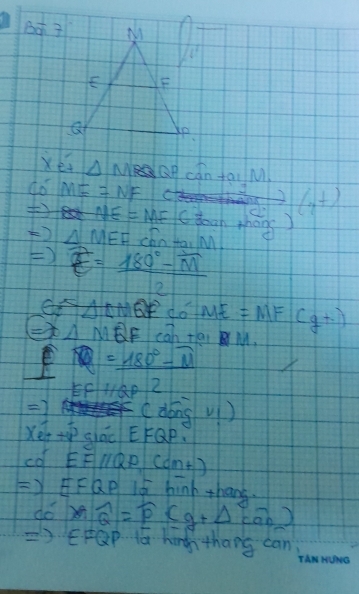 Bài 7:
M
E F
Q P
Xét Δ MQP cân tại M.
Có ME = NF (gt)
=) ME = MF (đoạn thẳng)
=) Δ MEF cân tại M
=) Ê = 180° - M̂
2
Δ MEF có ME = MF (gt)
=) Δ MEF cân tại M.
= 180° - M̂
2
EF // QP
=) (đồng vị)
Xét tứ giác EFQP.
có EF // QP (cm+)
=) EFQP là hình thang.
có Q̂ = P̂ (gt Δ cân)
=) EFQP là hình thang cân.
TÂN HƯNG